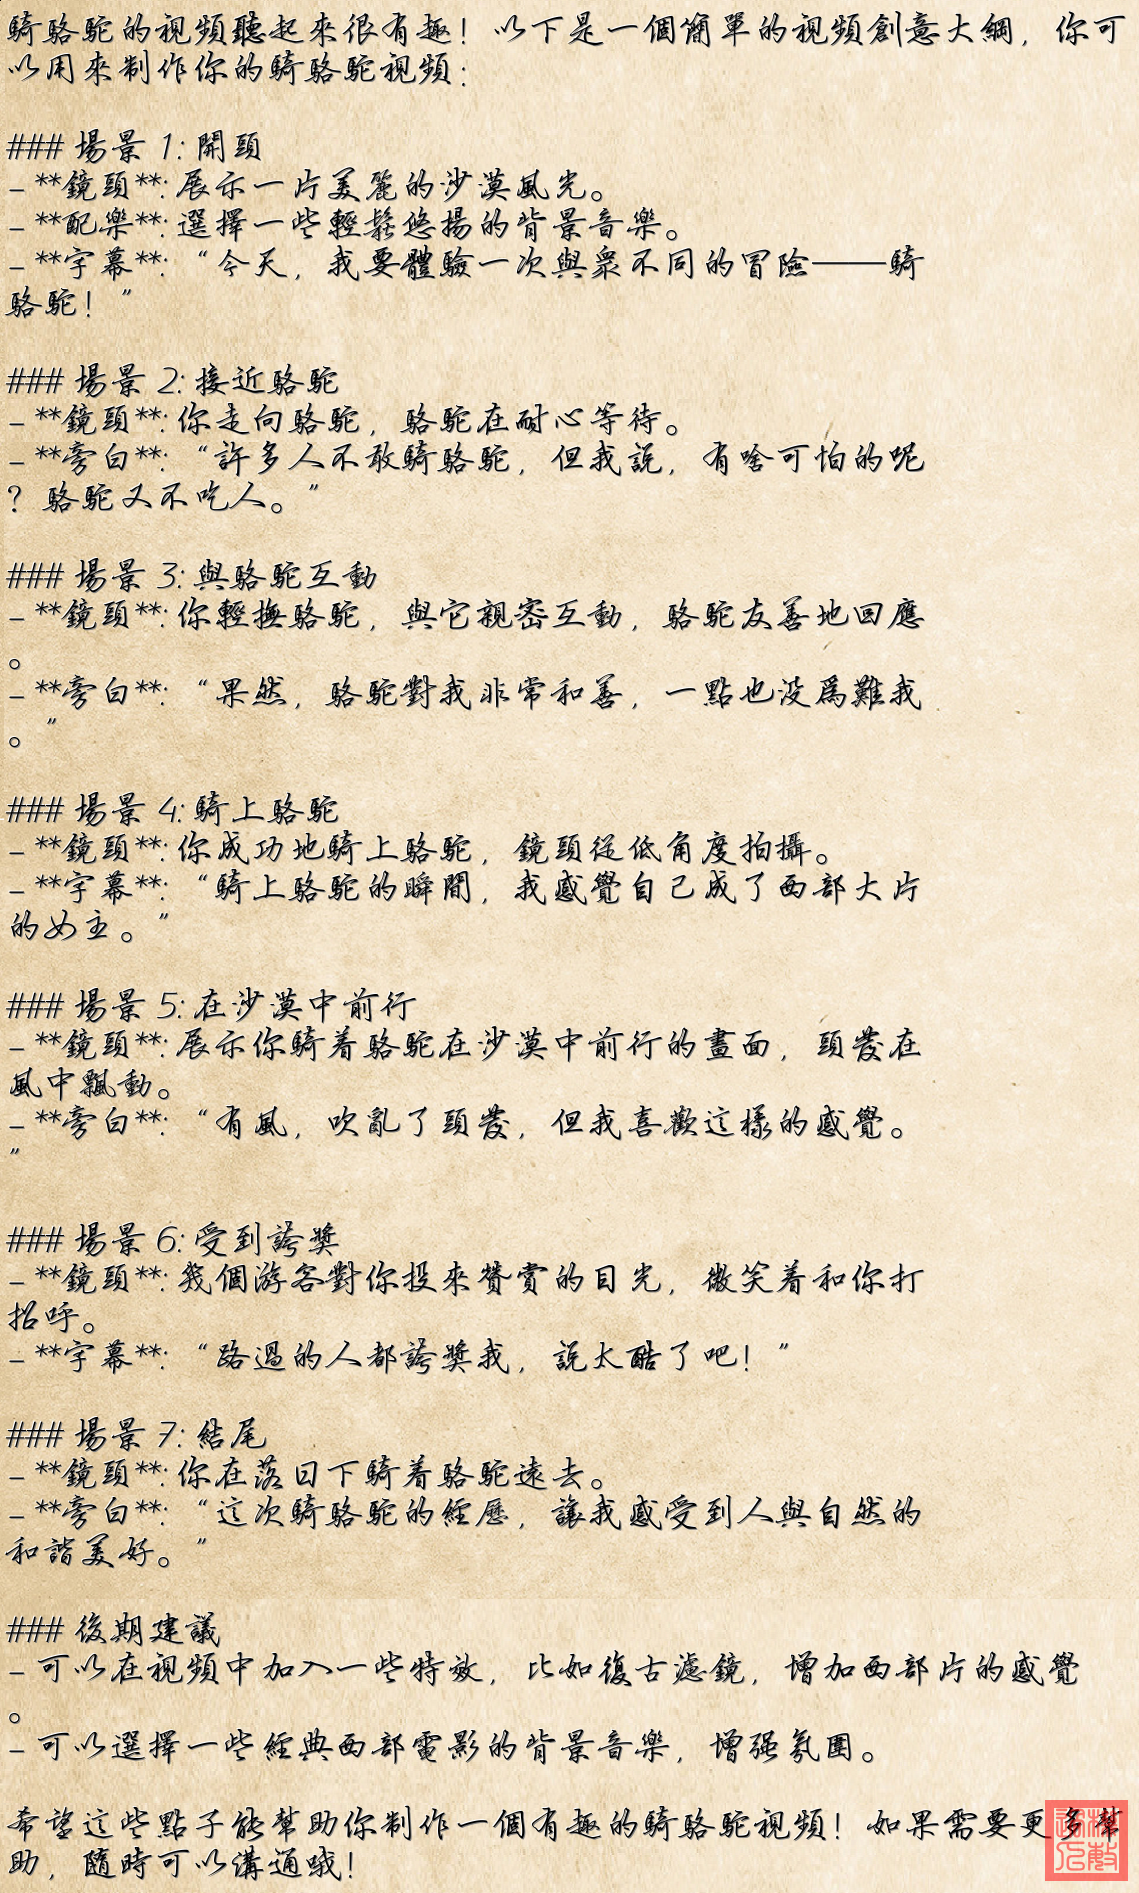 騎駱駝的視頻聽起來很有趣！以下是一個簡單的視頻創意大綱，你可
以用來制作你的騎駱駝視頻：
### 場景 1: 開頭
- **鏡頭**: 展示一片美麗的沙漠風光。
- **配樂**: 選擇一些輕鬆悠揚的背景音樂。
- **字幕**: “今天，我要體驗一次與衆不同的冒險——騎
駱駝！”
### 場景 2: 接近駱駝
- **鏡頭**: 你走向駱駝，駱駝在耐心等待。
- **旁白**: “許多人不敢騎駱駝，但我説，有啥可怕的呢
？駱駝又不吃人。”
### 場景 3: 與駱駝互動
- **鏡頭**: 你輕撫駱駝，與它親密互動，駱駝友善地回應
。
- **旁白**: “果然，駱駝對我非常和善，一點也没爲難我
。”
### 場景 4: 騎上駱駝
- **鏡頭**: 你成功地騎上駱駝，鏡頭從低角度拍攝。
- **字幕**: “騎上駱駝的瞬間，我感覺自己成了西部大片
的女主。”
### 場景 5: 在沙漠中前行
- **鏡頭**: 展示你騎着駱駝在沙漠中前行的畫面，頭發在
風中飄動。
- **旁白**: “有風，吹亂了頭發，但我喜歡這樣的感覺。
”
### 場景 6: 受到誇獎
- **鏡頭**: 幾個游客對你投來贊賞的目光，微笑着和你打
招呼。
- **字幕**: “路過的人都誇獎我，説太酷了吧！”
### 場景 7: 結尾
- **鏡頭**: 你在落日下騎着駱駝遠去。
- **旁白**: “這次騎駱駝的經歷，讓我感受到人與自然的
和諧美好。”
### 後期建議
- 可以在視頻中加入一些特效，比如復古濾鏡，增加西部片的感覺
。
- 可以選擇一些經典西部電影的背景音樂，增强氛圍。
希望這些點子能幫助你制作一個有趣的騎駱駝視頻！如果需要更多幫
助，隨時可以溝通哦！